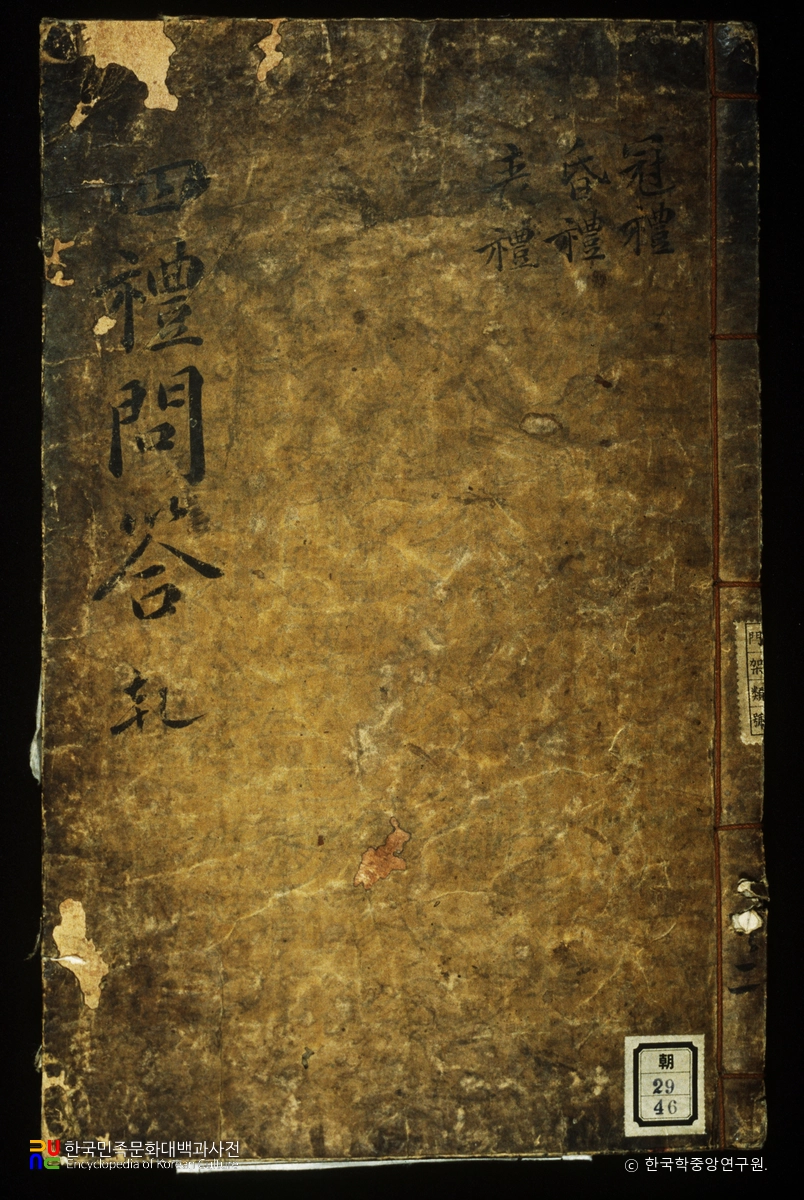 冠禮
昏禮
喪禮
四禮問答 乾
問
架
類
號
二
朝
29
46
한국민족문화대백과사전
Encyclopedia of Korean Culture
ⓒ 한국학중앙연구원.